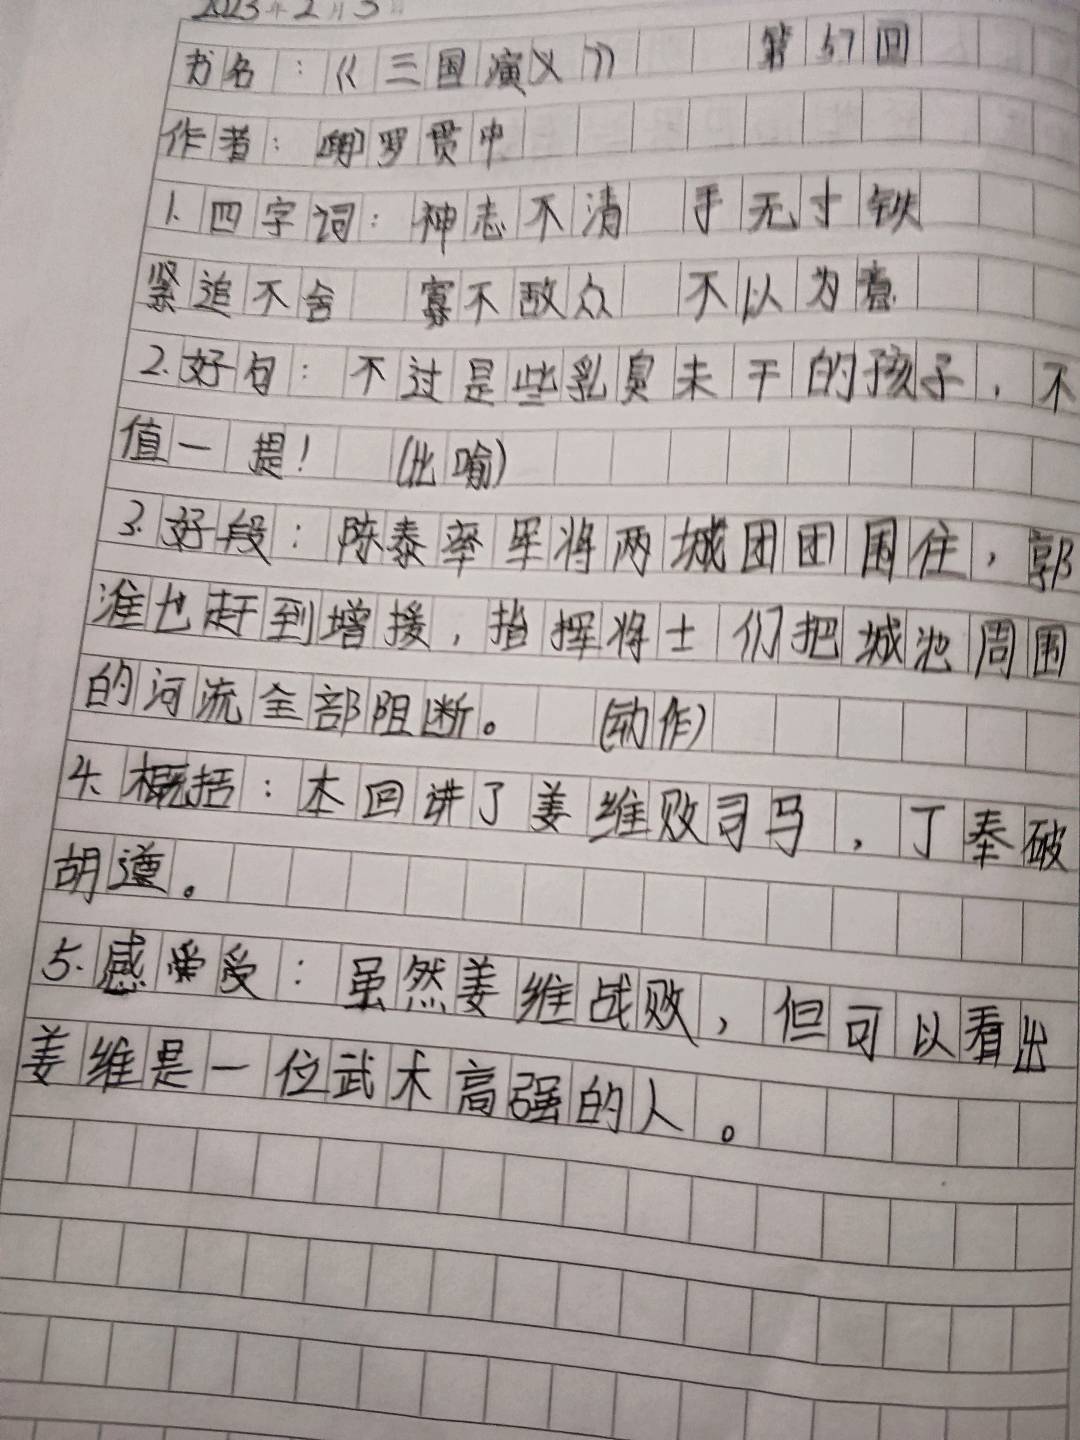 2023年2月3日
书名：《三国演义》 第57回
作者：[明]罗贯中
1.四字词：神志不清 手无寸铁
紧追不舍 寡不敌众 不以为意
2.好句：不过是些乳臭未干的孩子，不
值一提！ (比喻)
3.好段：陈泰率军将两城团团围住，郭
淮也赶到增援，指挥将士们把城池周围
的河流全部阻断。 (动作)
4.概括：本回讲了姜维败司马，丁奉破
胡遵。
5.感受：虽然姜维战败，但可以看出
姜维是一位武术高强的人。